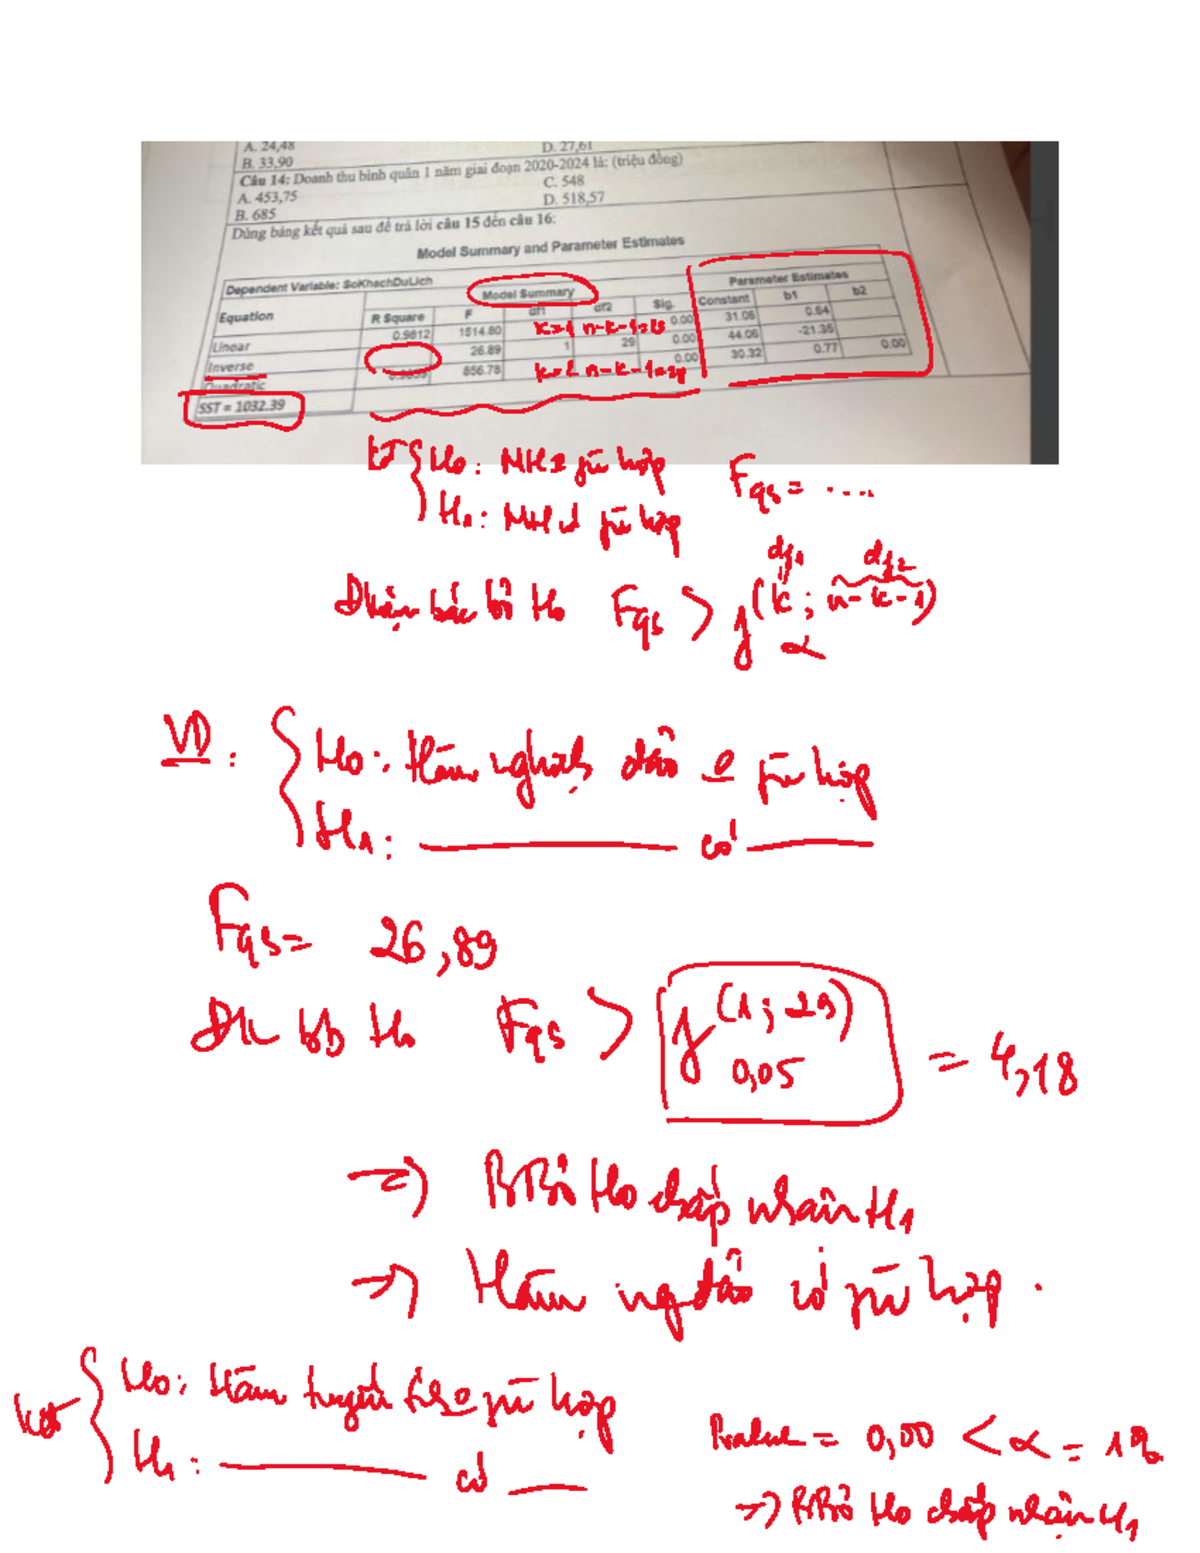 A. 24,48 D. 27,61
B. 33,90
Câu 14: Doanh thu bình quân 1 năm giai đoạn 2020-2024 là: (triệu đồng)
A. 453,75 C. 548
B. 685 D. 518,57
Dùng bảng kết quả sau để trả lời câu 15 đến câu 16:
Model Summary and Parameter Estimates
Dependent Variable: SoKhachDuLich
Model Summary Parameter Estimates
Equation R Square F df1 df2 Sig. Constant b1 b2
Linear 0.9812 1514.80 k=1 n-k-1= 0.00 31.06 0.64
Inverse 26.89 1 29 0.00 44.06 -21.35
Quadratic 856.78 k=2 n-k-1= 0.00 30.32 0.77 0.00
SST = 1032.39
H₀: MH phù hợp Fqs = ....
H₁: MH phù hợp
df1 df2
Điều kiện bác bỏ H₀ Fqs > f (k; n-k-1) α
VD: H₀: Hàm nghịch đảo phù hợp
H₁: có
Fqs = 26,89
ĐK bb H₀ Fqs > f (1; 29) 0,05 = 4,18
=> BBỏ H₀ chấp nhận H₁
=> Hàm ng đảo có phù hợp.
H₀: Hàm tuyến tính phù hợp
H₁: có
Pvalue = 0,00 < α = 1%
=> BBỏ H₀ chấp nhận H₁